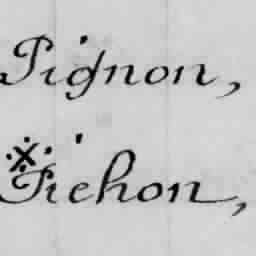 Pignon,
※Pichon,